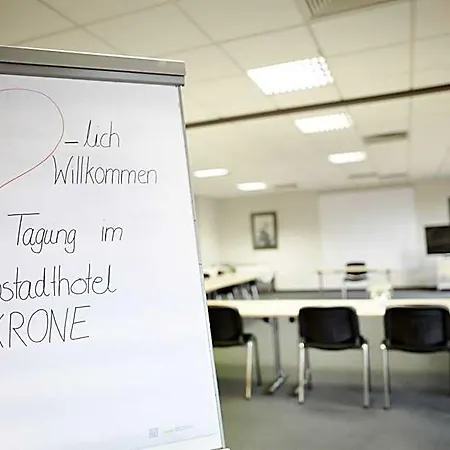 -lich
Willkommen
Tagung im
stadthotel
KRONE